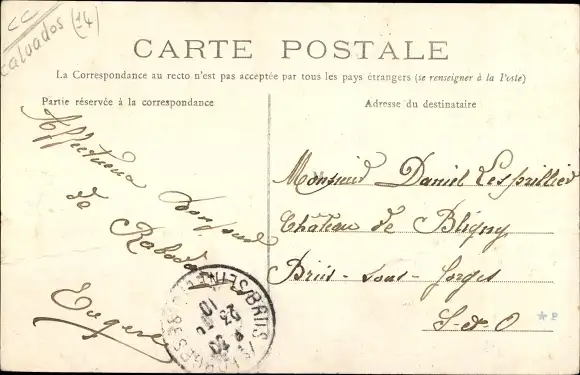 CC
Calvados (14)
CARTE POSTALE
La Correspondance au recto n'est pas acceptée par tous les pays étrangers (se renseigner à la Poste)
Partie réservée à la correspondance
Adresse du destinataire
Affectueux bonjour
de
Eugène
Monsieur Daniel Lespillier
Château de Bligny
Briis-sous-Forges
S-&-O
BRIIS
23
10